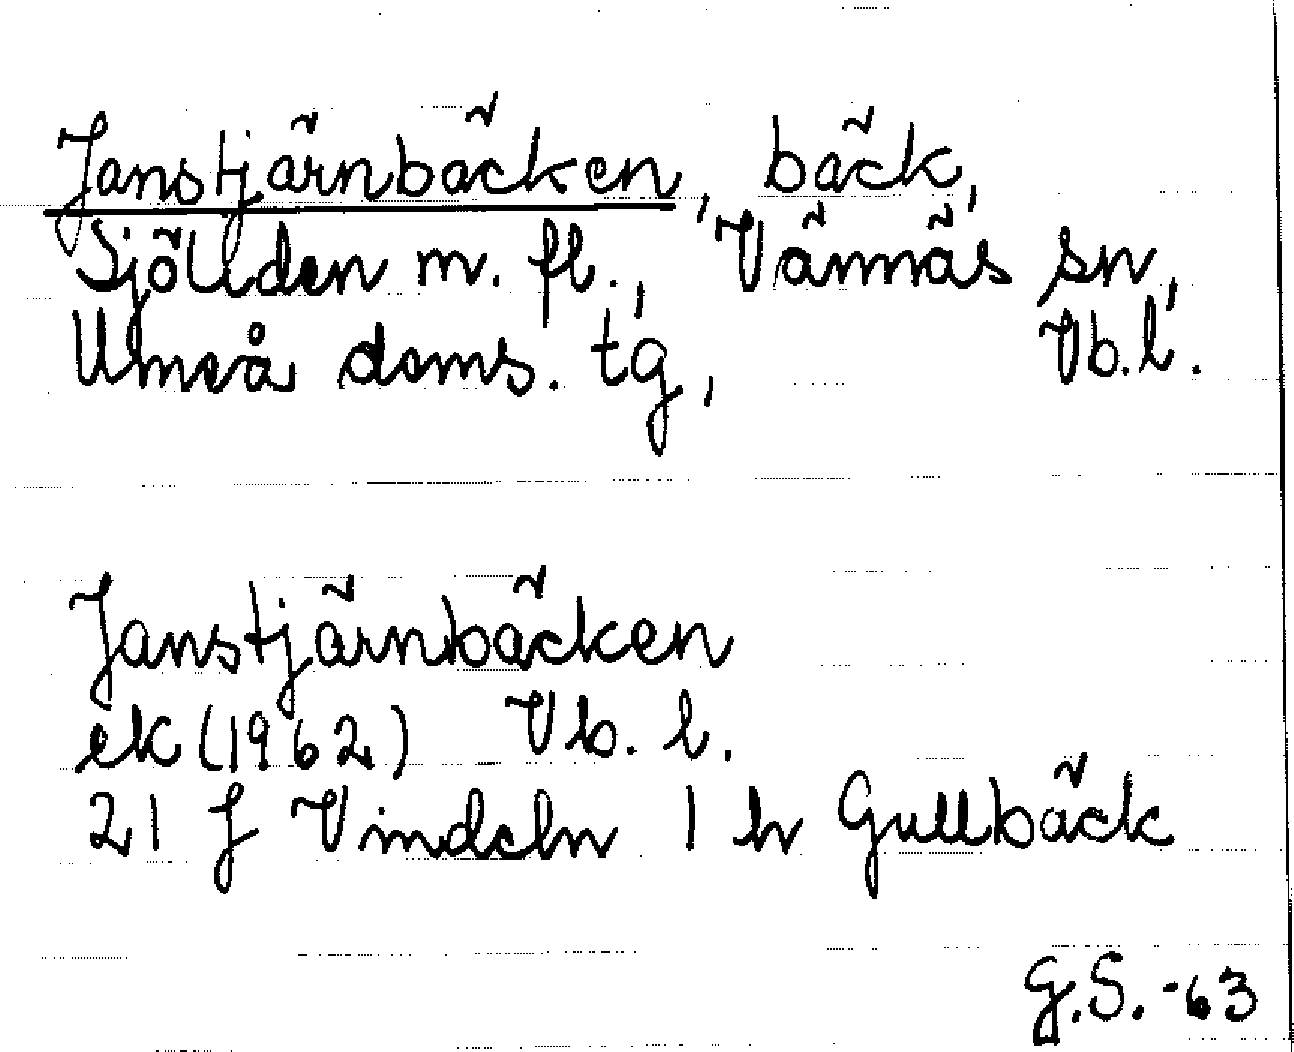 Janstjärnbäcken, bäck,
Sjöllden m. fl., Vännäs sn,
Umeå doms. tg, Vb.l.
Janstjärnbäcken
ek (1962) Vb. l.
21 J Vindeln 1 h Gullbäck
G.S. -63